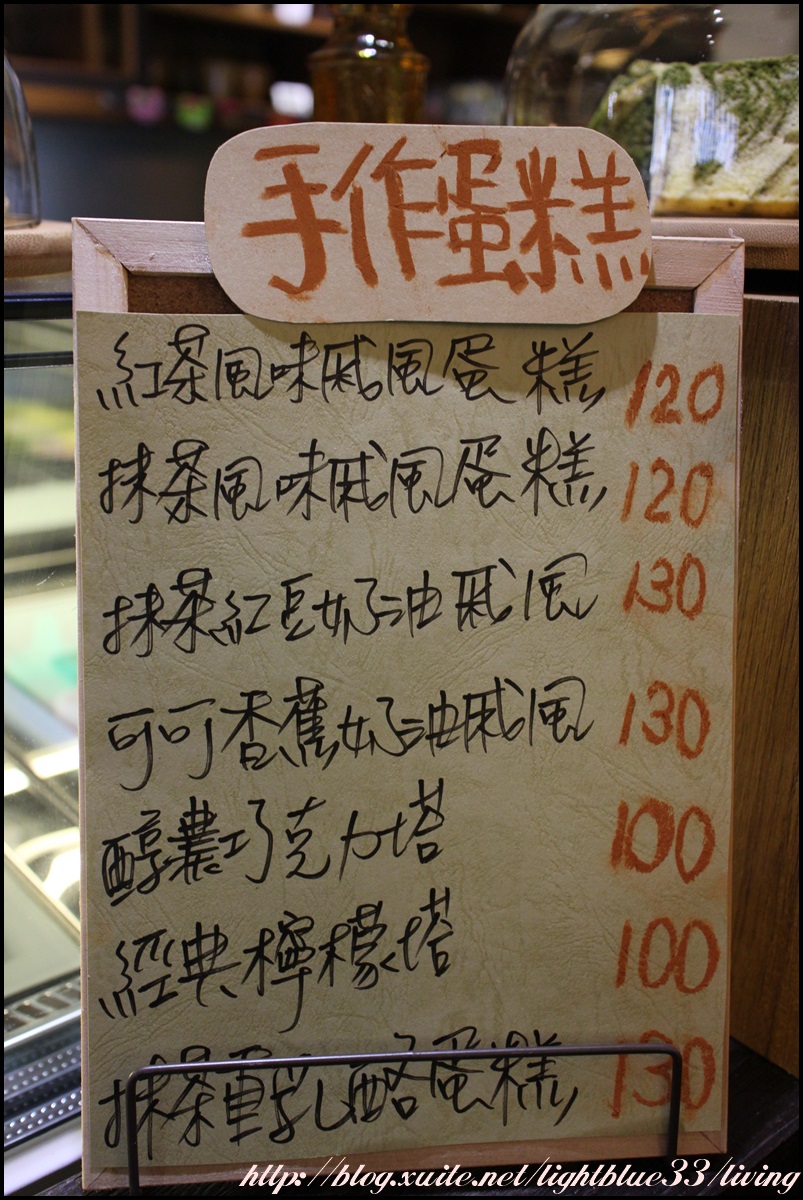 手作蛋糕
紅茶風味戚風蛋糕 120
抹茶風味戚風蛋糕 120
抹茶紅豆奶油戚風 130
可可香蕉奶油戚風 130
醇濃巧克力塔 100
經典檸檬塔 100
抹茶重乳酪蛋糕 130
http://blog.xuite.net/lightblue33/living